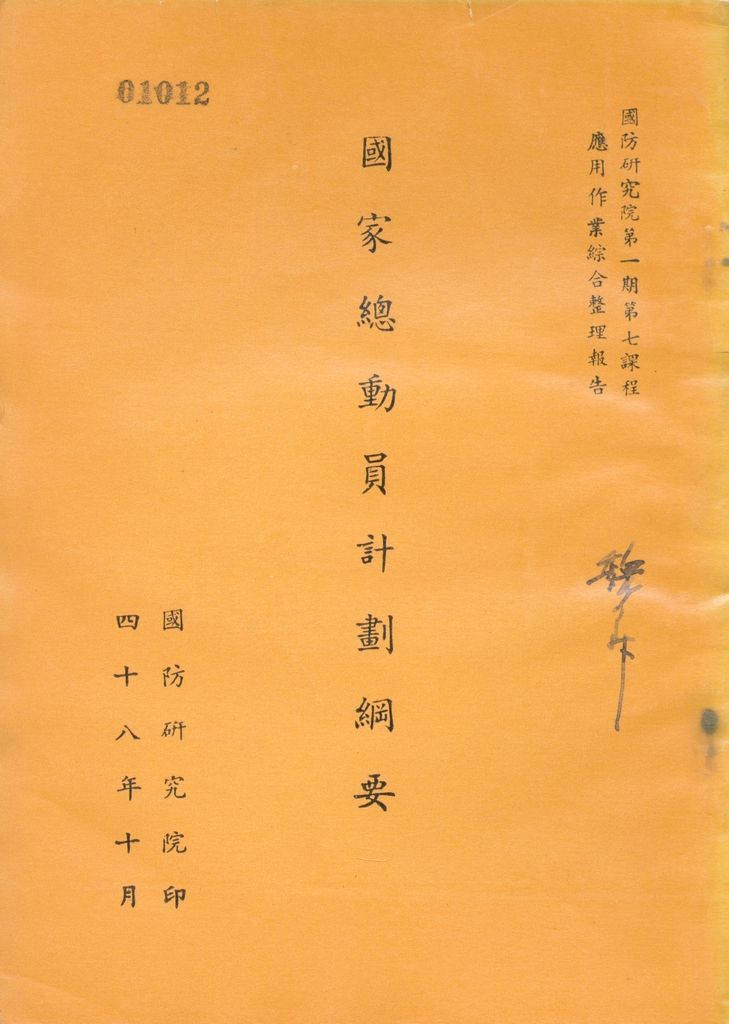 01012
國防研究院第一期第七課程
應用作業綜合整理報告
國家總動員計劃綱要
國防研究院印
四十八年十月